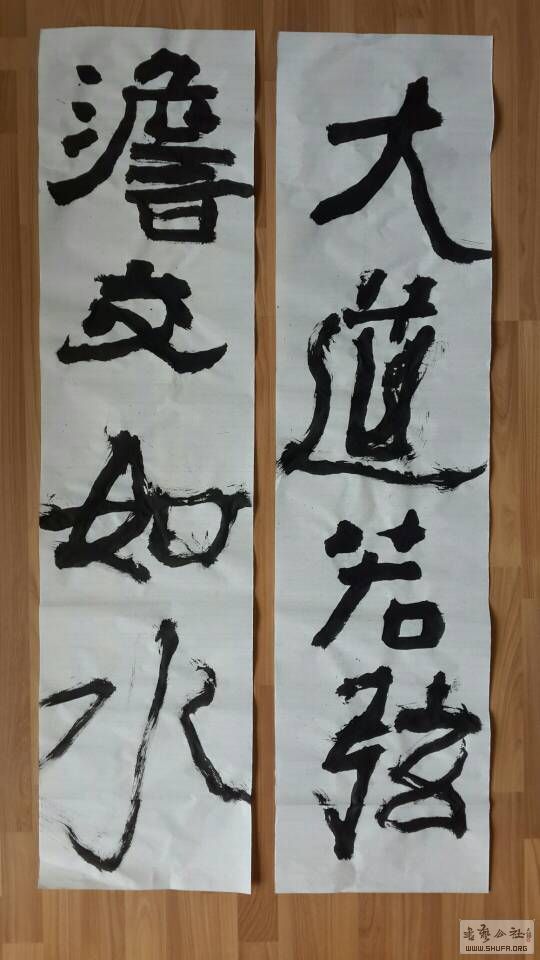 大道若弦
澹交如水
书艺公社
WWW.SHUFA.ORG